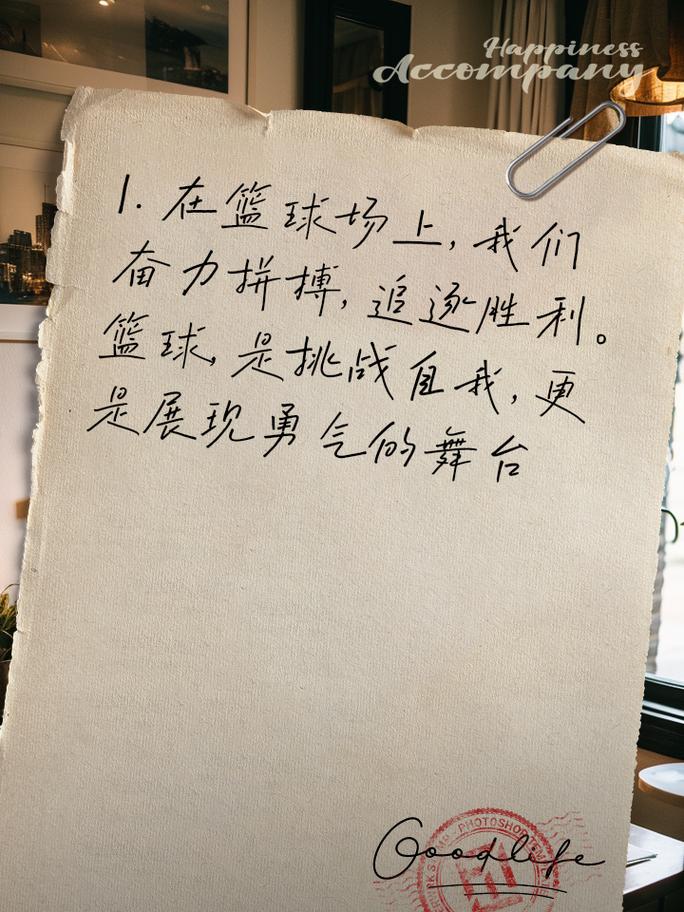 Happiness
Accompany
1. 在篮球场上,我们
奋力拼搏,追逐胜利。
篮球,是挑战自我,更
是展现勇气的舞台
PHOTOSHOP
Goodlife